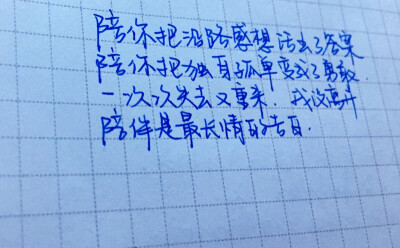 陪你把沿路感想活出了答案
陪你把独自孤单变成了勇敢.
一次次失去又重来.我没离开
陪伴是最长情的告白.